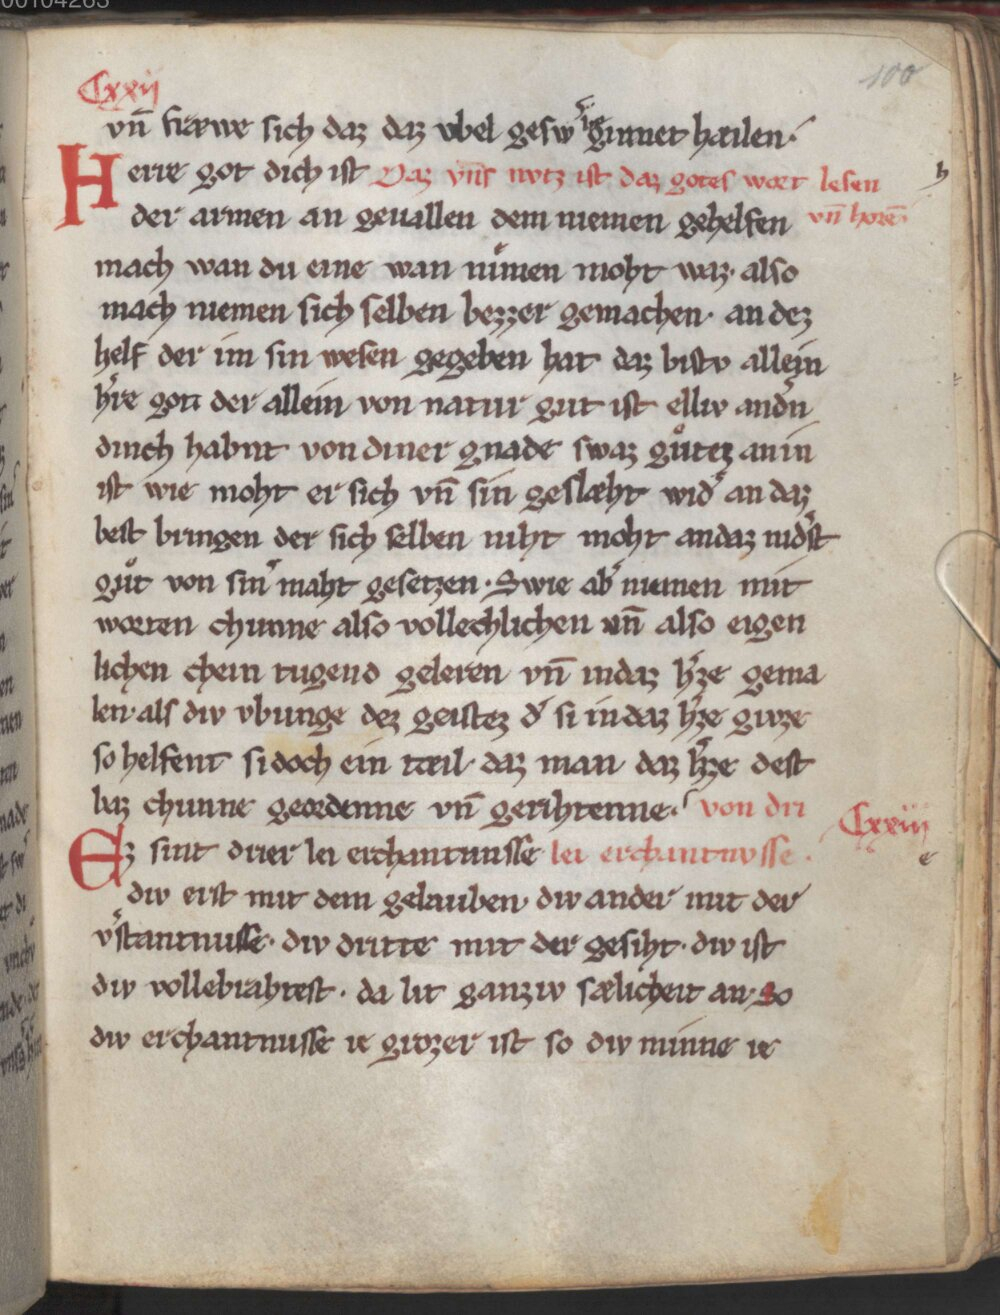 00104263
Cxxij
100
vn̄ siræwe sich daz daz vbel gesw gunnet hæilen·
Herre got dich ist Daz vn̄s nvtz ist daz gotes wort lesen
vn̄ horē
der armen an geuallen dem niemen gehelfen
mach wan du eine wan nůmen moht waz· also
mach niemen sich selben bezzer gemachen· an dez
helf der im sin wesen gegeben hat daz bistv allein
hʼre got der allein von natur gut ist elliv andʼn
dinch habnt von diner gnade swaz gůtez an in
ist wie moht er sich vn̄ sin geslæht widʼ an daz
best bringen der sich selben niht moht andaz nidʼst
gůt von sinʼ maht gesetzen· Swie abʼ niemen mit
worten chunne also vollechlichen vn̄ also eigen
lichen chein tugend geleren vn̄ indaz hʼze gema
len· als div vbunge dez geistez dʼ si in daz hʼze givze
so helfent si doch ein tæil· daz man daz hʼze dest
baz chunne geordenne vn̄ gerihtenne· von dri
Cxxiii
Ez sint drier lei erchantnusse lei erchantnvsse·
e
div erst mit dem gelauben· div ander mit der
vʼstantnusse· div dritte mit der gesiht· div ist
div vollebrahtest· da lit ganziv sælicheit an· So
div erchantnusse ie grozer ist so div minne ie